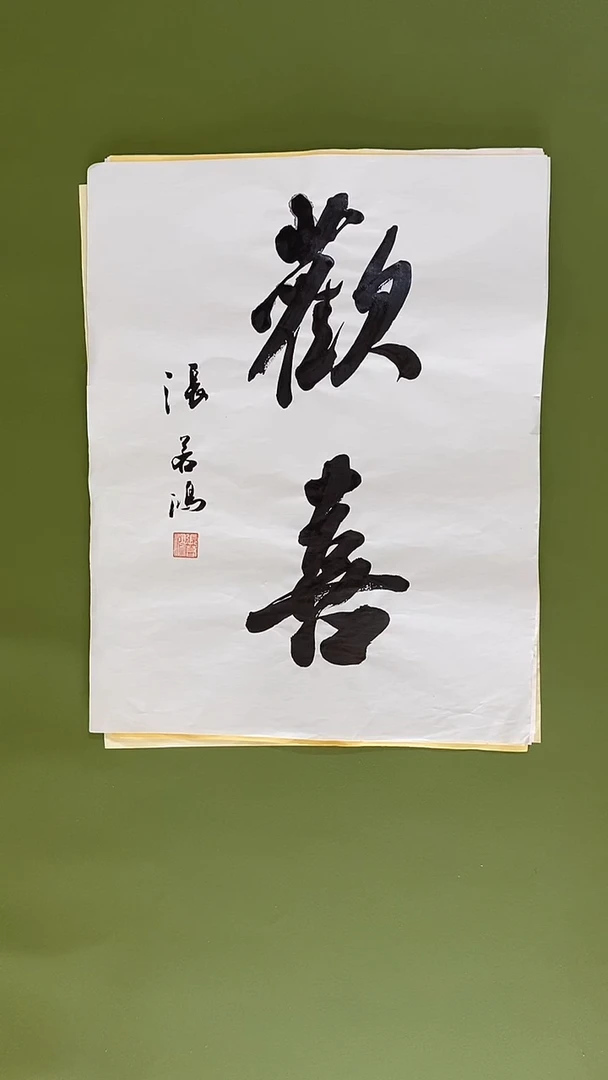 歡喜
張若鴻